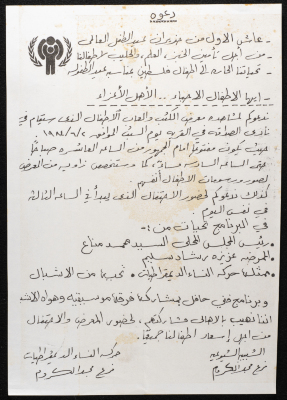 دعوة
- عاش الاول من حزيران عيد الطفل العالمي
- من أجل تأمين الخبز، العلم، والحليب لاطفالنا
- تحياتنا الحارة الى اطفال فلسطين بمناسبة عيد الطفل
- ايها الاطفال الاحباء .. الأهل الأعزاء
ندعوكم لمشاهدة معرض الكتب والعاب الاطفال الذي سيقام في
نادي الصداقة في القرية يوم السبت الموافق
حيث يكون مفتوحا امام الجمهور من الساعة العاشرة صباحا
حتى الساعة السادسة مساء، كما وستخصص زاوية من المعرض
لصور ورسومات الاطفال أنفسهم
كذلك ندعوكم لحضور الاحتفال الذي يبدأ في الساعة الثالثة
في نفس اليوم.
في البرنامج تحيات من :-
رئيس المجلس المحلي السيد محمد مناع
الممرضة عزيزة رشاد سليم
ممثلة حركة النساء الديمقراطيات • تحية من الاشبال
وبرنامج فني حافل بمشاركة فرقة موسيقية وهواة
اننا نهيب بالاهالي مشاركتهم لحضور المعرض والاحتفال
من اجل إسعاد اطفالنا جميعا.
الشبيبة الشيوعية
فرع مجد الكروم
حركة النساء الديمقراطيات
فرع مجد الكروم